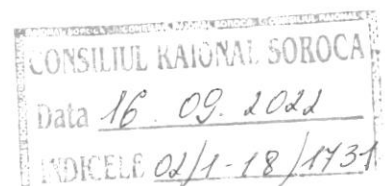 CONSILIUL RAIONAL SOROCA
Data 16. 09. 2022
INDICELE 02/1-18/1731